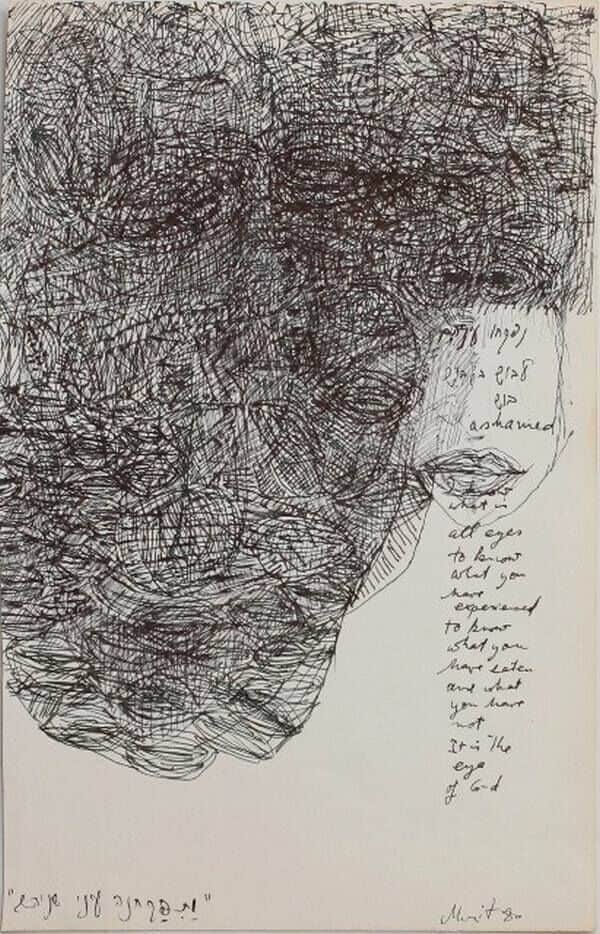 נפקחו
בוש
ashamed
know
what is
all eyes
to know
what you
have
experienced
to know
what you
have eaten
and what
you have
not
It is the
eye
of G-d
"וַתִּפָּקַחְנָה עיני שניהם"